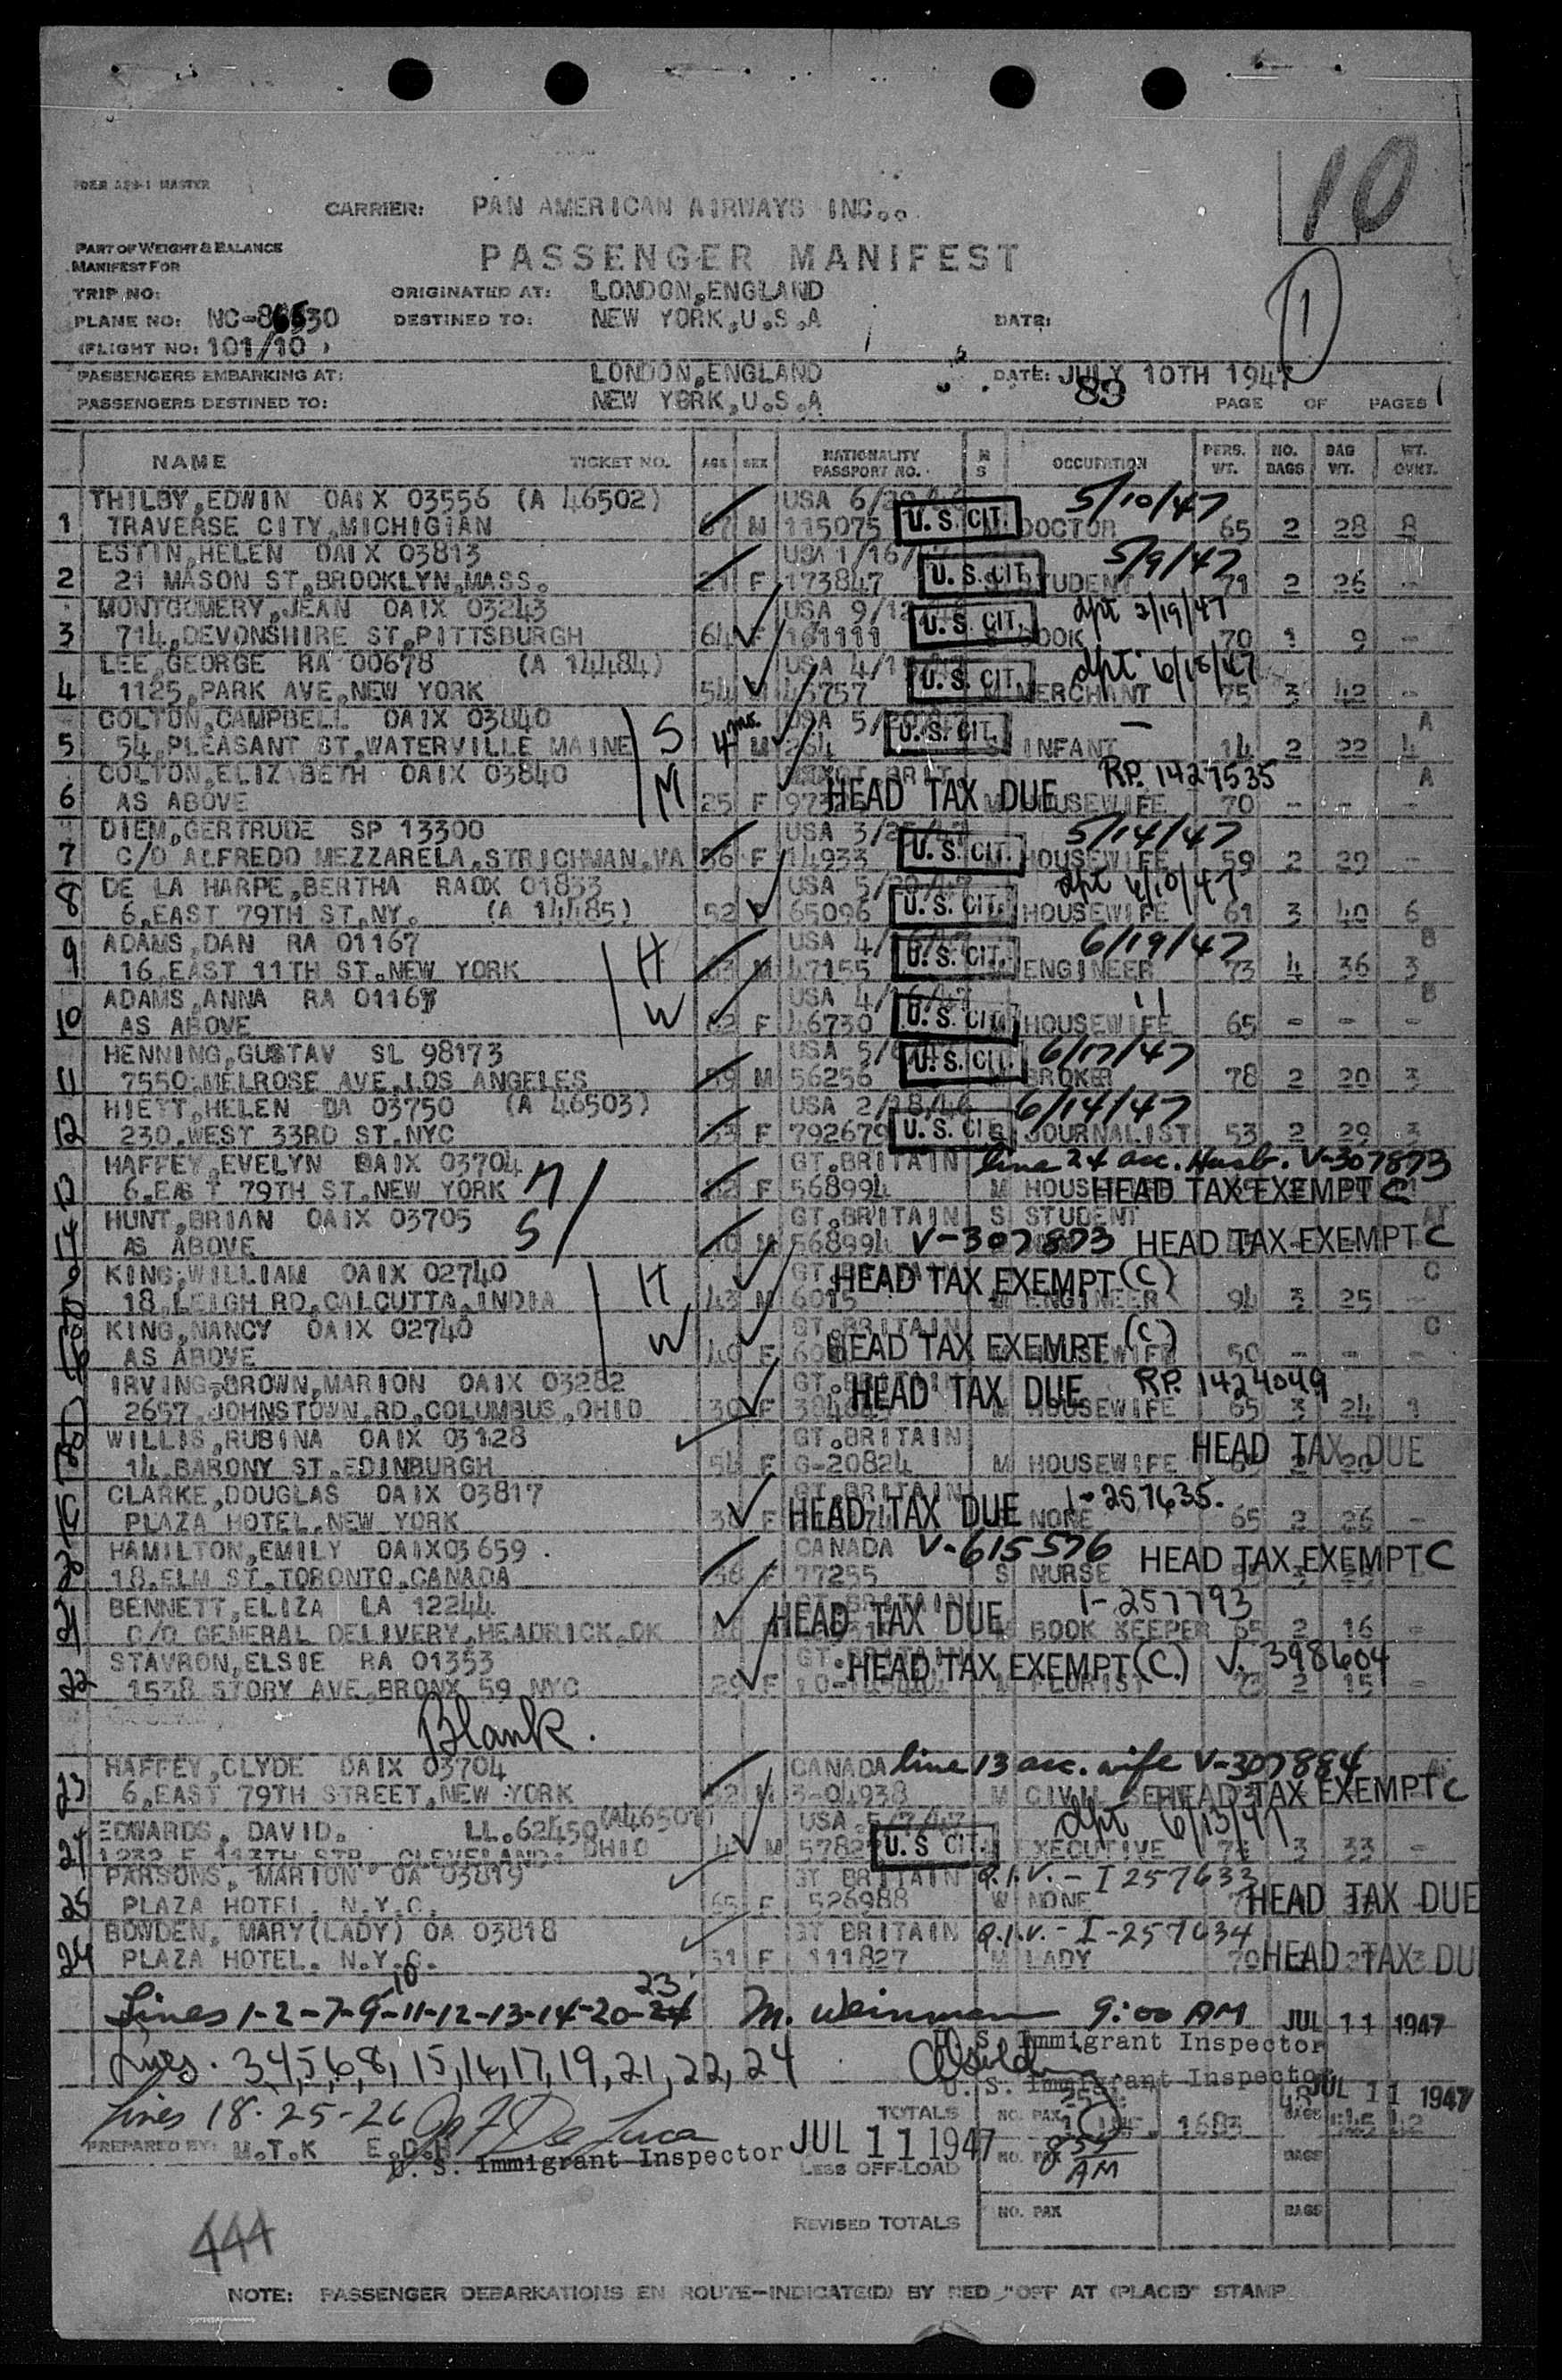 FORM ADM-1 MASTER
10
CARRIER: PAN AMERICAN AIRWAYS INC..
PART OF WEIGHT & BALANCE
MANIFEST FOR
PASSENGER MANIFEST
1
TRIP NO: ORIGINATED AT: LONDON,ENGLAND
PLANE NO: NC-86530 DESTINED TO: NEW YORK,U.S.A DATE:
(FLIGHT NO: 101/10 )
PASSENGERS EMBARKING AT: LONDON,ENGLAND DATE: JULY 10TH 1947
PASSENGERS DESTINED TO: NEW YORK,U.S.A 89 PAGE OF PAGES 1
NAME TICKET NO. AGE SEX NATIONALITY PASSPORT NO. M S OCCUPATION PERS. WT. NO. BAGS BAG WT. WT. OVHT.
THILBY,EDWIN OAIX 03556 (A 46502) USA 5/10/47
1 TRAVERSE CITY,MICHIGIAN 67 M 115075 U.S. CIT. DOCTOR 65 2 28 8
ESTIN,HELEN OAIX 03813 USA 1/16/ 5/9/47
2 21 MASON ST,BROOKLYN,MASS. 21 F 173847 U.S. CIT. S STUDENT 71 2 26 -
MONTGOMERY,JEAN OAIX 03243 USA 9/12 dpt 2/19/47
3 714,DEVONSHIRE ST,PITTSBURGH 64 F 161111 U.S. CIT. S COOK 70 1 9 -
LEE,GEORGE RA 00678 (A 14484) USA 4/1 dpt 6/18/47
4 1125,PARK AVE,NEW YORK 54 M 45757 U.S. CIT. M MERCHANT 75 3 42 -
COLTON,CAMPBELL OAIX 03840 S USA 5/20 — A
5 54,PLEASANT ST,WATERVILLE MAINE 4 mo. M 264 U.S. CIT. S INFANT 14 2 22 4
COLTON,ELIZABETH OAIX 03840 M RP. 1427535 A
6 AS ABOVE 25 F HEAD TAX DUE HOUSEWIFE 70 - - -
DIEM,GERTRUDE SP 13300 USA 3/25/47 5/14/47
7 C/O ALFREDO MEZZARELA,STRICHMAN,VA 56 F 14933 U.S. CIT. HOUSEWIFE 59 2 29 -
DE LA HARPE,BERTHA RAOX 01833 USA 5/20/47 dpt 6/10/47
8 6,EAST 79TH ST,NY. (A 14485) 52 F 65096 U.S. CIT. HOUSEWIFE 61 3 40 6
ADAMS,DAN RA 01167 H USA 4/16/47 6/19/47 B
9 16,EAST 11TH ST.NEW YORK 63 M 47155 U.S. CIT. ENGINEER 73 4 36 3
ADAMS,ANNA RA 01168 W USA 4/16/47 " B
10 AS ABOVE 62 F 46730 U.S. CIT. HOUSEWIFE 65 - - -
HENNING,GUSTAV SL 98173 USA 5/ 6/17/47
11 7550,MELROSE AVE,LOS ANGELES 59 M 56256 U.S. CIT. BROKER 78 2 20 3
HIETT,HELEN OA 03750 (A 46503) USA 2/18/46 6/14/47
12 230,WEST 33RD ST.NYC 33 F 792679 U.S. CIT. S JOURNALIST 53 2 29 3
HAFFEY,EVELYN OAIX 03704 M GT.BRITAIN line 24 acc. Husb. V-307873
13 6,EAST 79TH ST.NEW YORK F 568994 M HOUS HEAD TAX EXEMPT C
HUNT,BRIAN OAIX 03705 S GT.BRITAIN S STUDENT
14 AS ABOVE 10 M 568994 V-307873 HEAD TAX EXEMPT C
KING,WILLIAM OAIX 02740 H GT.BRITAIN HEAD TAX EXEMPT (C) C
18,LEIGH RD,CALCUTTA,INDIA 43 M 6015 M ENGINEER 94 3 25 -
KING,NANCY OAIX 02740 W GT.BRITAIN C
AS ABOVE 40 F HEAD TAX EXEMPT (C) HOUSEWIFE 50 - - -
IRVING-BROWN,MARION OAIX 03282 GT.BRITAIN HEAD TAX DUE RP. 1424049
2657,JOHNSTOWN,RD,COLUMBUS,OHIO 30 F M HOUSEWIFE 65 3 24 1
WILLIS,RUBINA OAIX 03128 GT.BRITAIN HEAD TAX DUE
14,BARONY ST.EDINBURGH 54 F G-20824 M HOUSEWIFE
CLARKE,DOUGLAS OAIX 03817 GT.BRITAIN I-257635.
19 PLAZA HOTEL.NEW YORK F HEAD TAX DUE NONE 65 2 26 -
HAMILTON,EMILY OAIX03659 . CANADA V-615576 HEAD TAX EXEMPT C
20 18,ELM ST.TORONTO,CANADA F 77255 S NURSE
BENNETT,ELIZA LA 12244 HEAD TAX DUE I-257793
21 C/O GENERAL DELIVERY,HEADRICK,OK F BOOK KEEPER 65 2 16 -
STAVRON,ELSIE RA 01353 HEAD TAX EXEMPT (C.) V. 398604
22 1538 STORY AVE,BRONX 59 NYC 29 F FLORIST 73 2 15 -
Blank.
HAFFEY,CLYDE OAIX 03704 CANADA line 13 acc. wife V-307884
23 6,EAST 79TH STREET,NEW YORK 52 M 3-04938 M CIVIL SER HEAD TAX EXEMPT C
EDWARDS, DAVID. LL.62450 (A46507) USA.5/7/47 dpt 6/13/47
24 1232 E 113TH STR. CLEVELAND. OHIO M U.S CIT. EXECUTIVE 3 33 -
PARSONS, MARION OA 03819 GT BRITAIN Q.I.V. - I 257633
25 PLAZA HOTEL. N.Y.C. 65 F 526988 W NONE HEAD TAX DUE
BOWDEN, MARY(LADY) OA 03818 GT BRITAIN Q.I.V. - I-257634
PLAZA HOTEL. N.Y.C. 51 F 111827 M LADY 70 HEAD TAX DU
Lines 1-2-7-9-10-11-12-13-14-20-23 M. Weinman 9:00 AM JUL 11 1947
U. S. Immigrant Inspector
Lines. 3,4,5,6,8, 15,16,17,19,21,22,24
U. S. Immigrant Inspector JUL 11 1947
Lines 18-25-26 De Luca TOTALS NO. PAX 1683 BAGS
PREPARED BY: M.T.K E.D.R U. S. Immigrant Inspector JUL 11 1947 LESS OFF-LOAD NO. PAX 855 AM BAGS
REVISED TOTALS NO. PAX BAGS
444
NOTE: PASSENGER DEBARKATIONS EN ROUTE-INDICATE(D) BY RED "OFF AT (PLACE)" STAMP